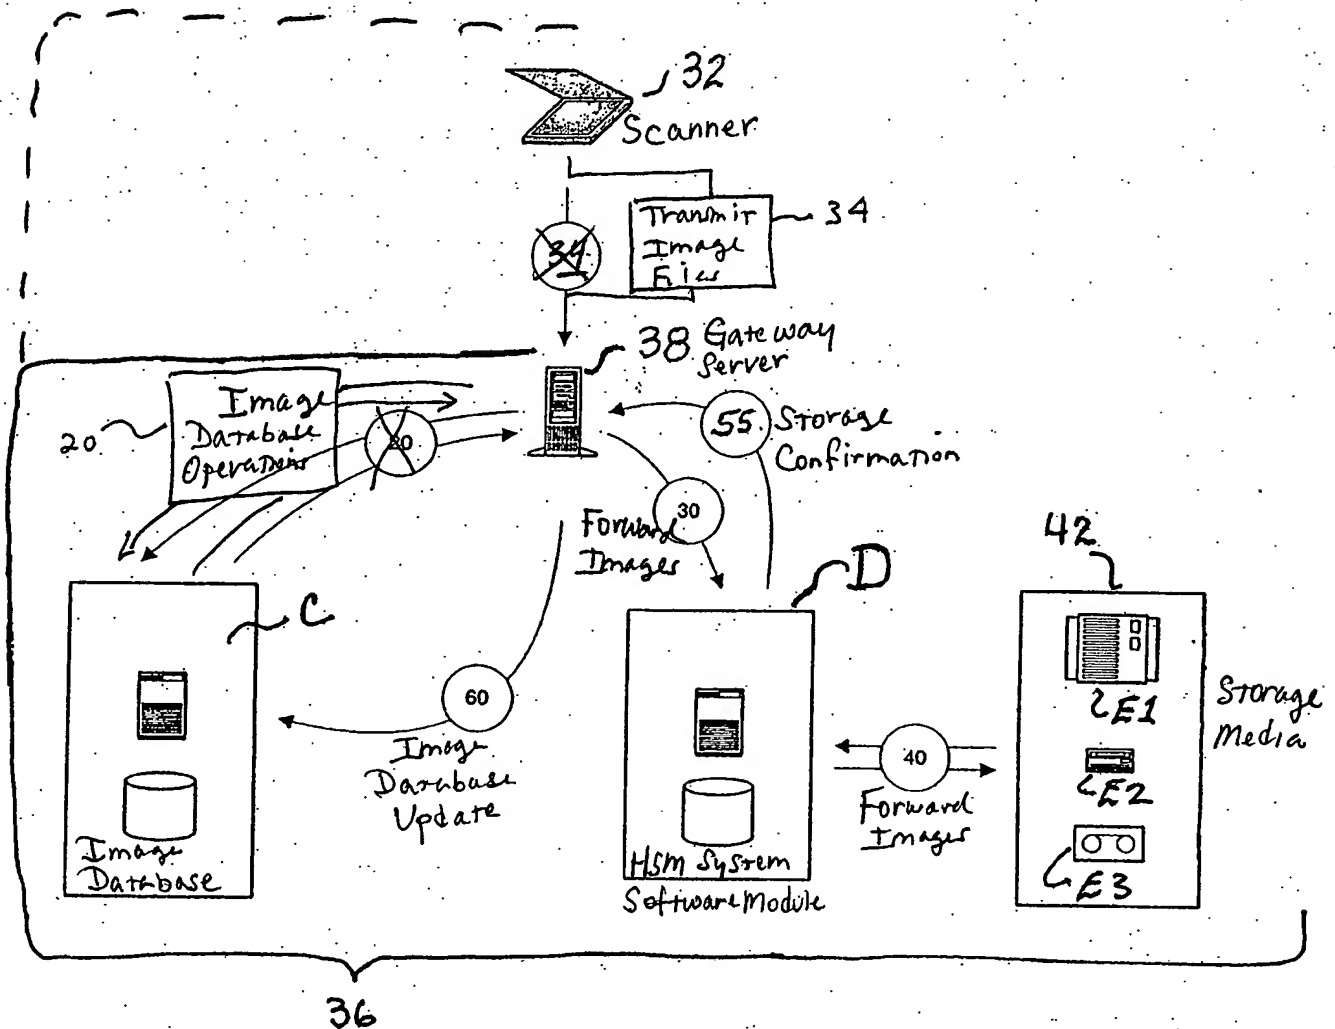 32
Scanner
Transmit
Image
Files
34
34
38 Gateway
Server
Image
Database
Operations
20
20
55
Storage
Confirmation
30
Forward
Images
42
C
D
E1
E2
E3
Storage
Media
60
Image
Database
Update
40
Forward
Images
Image
Database
HSM System
Software Module
36